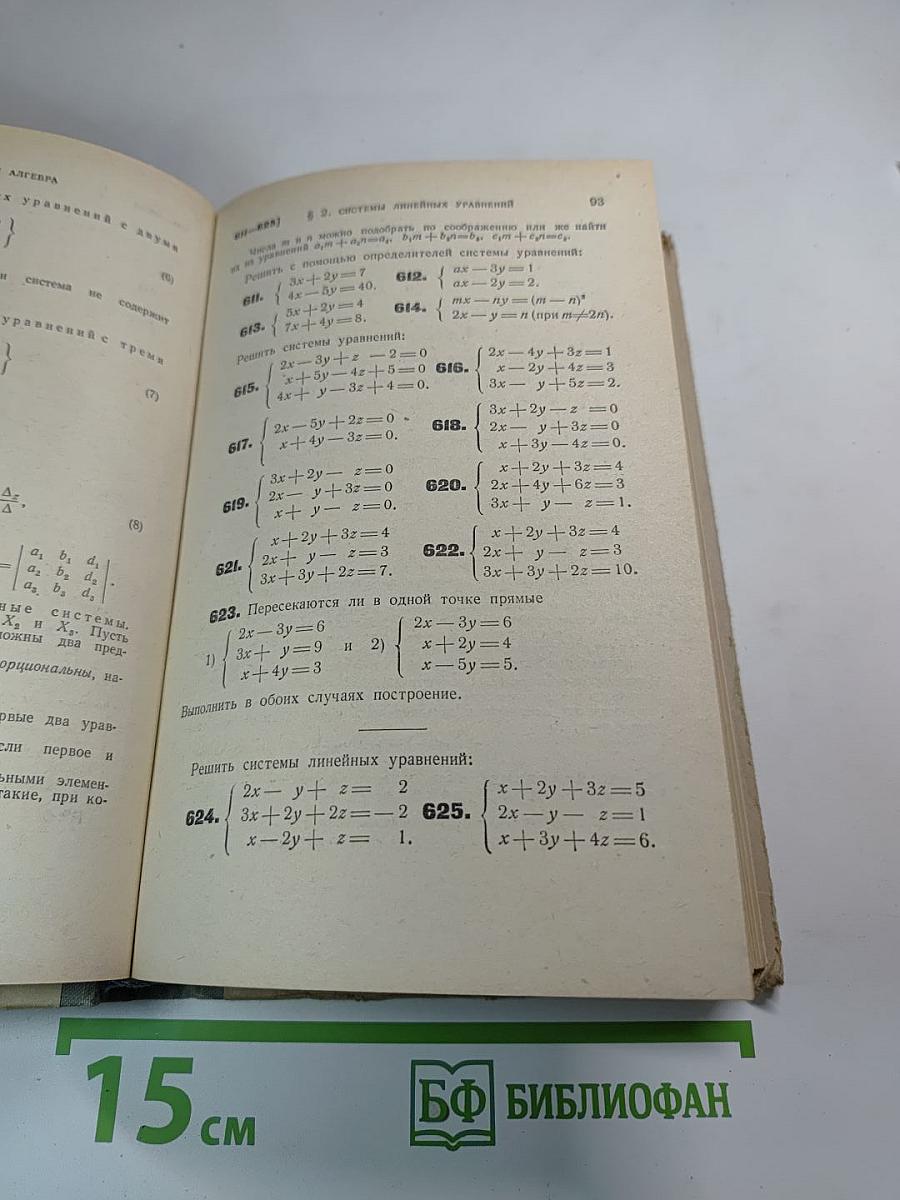 АЛГЕБРА
х уравнений с двумя
}
(6)
и система не содержит
уравнений с тремя
}
(7)
Δz
Δ ,
(8)
= | a₁ b₁ d₁ |
| a₂ b₂ d₂ | .
| a₃ b₃ d₃ |
ные системы.
X₂ и X₃. Пусть
можны два пред-
орциональны, на-
рвые два урав-
сли первое и
льными элемен-
такие, при ко-
611—625] § 2. СИСТЕМЫ ЛИНЕЙНЫХ УРАВНЕНИЙ 93
Числа m и n можно подобрать по соображению или же найти
их из уравнений a₁m + a₂n = a₃, b₁m + b₂n = b₃, c₁m + c₂n = c₃.
Решить с помощью определителей системы уравнений:
611. { 3x + 2y = 7
4x — 5y = 40.
612. { ax — 3y = 1
ax — 2y = 2.
613. { 5x + 2y = 4
7x + 4y = 8.
614. { mx — ny = (m — n)²
2x — y = n (при m ≠ 2n).
Решить системы уравнений:
615. { 2x — 3y + z — 2 = 0
x + 5y — 4z + 5 = 0
4x + y — 3z + 4 = 0.
616. { 2x — 4y + 3z = 1
x — 2y + 4z = 3
3x — y + 5z = 2.
617. { 2x — 5y + 2z = 0
x + 4y — 3z = 0.
618. { 3x + 2y — z = 0
2x — y + 3z = 0
x + 3y — 4z = 0.
619. { 3x + 2y — z = 0
2x — y + 3z = 0
x + y — z = 0.
620. { x + 2y + 3z = 4
2x + 4y + 6z = 3
3x + y — z = 1.
621. { x + 2y + 3z = 4
2x + y — z = 3
3x + 3y + 2z = 7.
622. { x + 2y + 3z = 4
2x + y — z = 3
3x + 3y + 2z = 10.
623. Пересекаются ли в одной точке прямые
1) { 2x — 3y = 6
3x + y = 9
x + 4y = 3
и 2) { 2x — 3y = 6
x + 2y = 4
x — 5y = 5.
Выполнить в обоих случаях построение.
Решить системы линейных уравнений:
624. { 2x — y + z = 2
3x + 2y + 2z = — 2
x — 2y + z = 1.
625. { x + 2y + 3z = 5
2x — y — z = 1
x + 3y + 4z = 6.
15 см
БФ БИБЛИОФАН